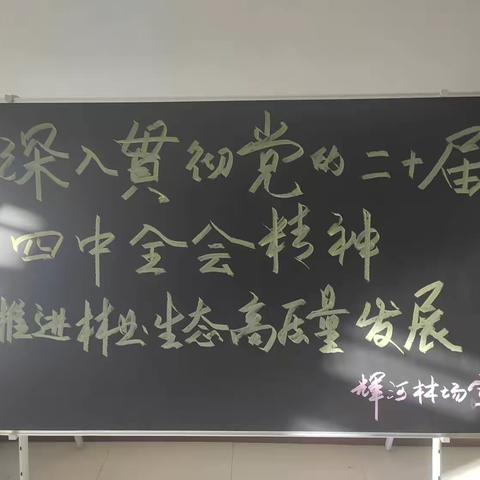 深入贯彻党的二十届
四中全会精神
推进林业生态高质量发展
辉河林场